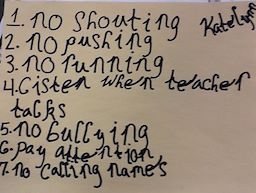 1. no Shouting
Katelynn
2. no pushing
3. no running
4. Cisten when teacher
talks
5. no bullying
6. pay attention
7. no calling names